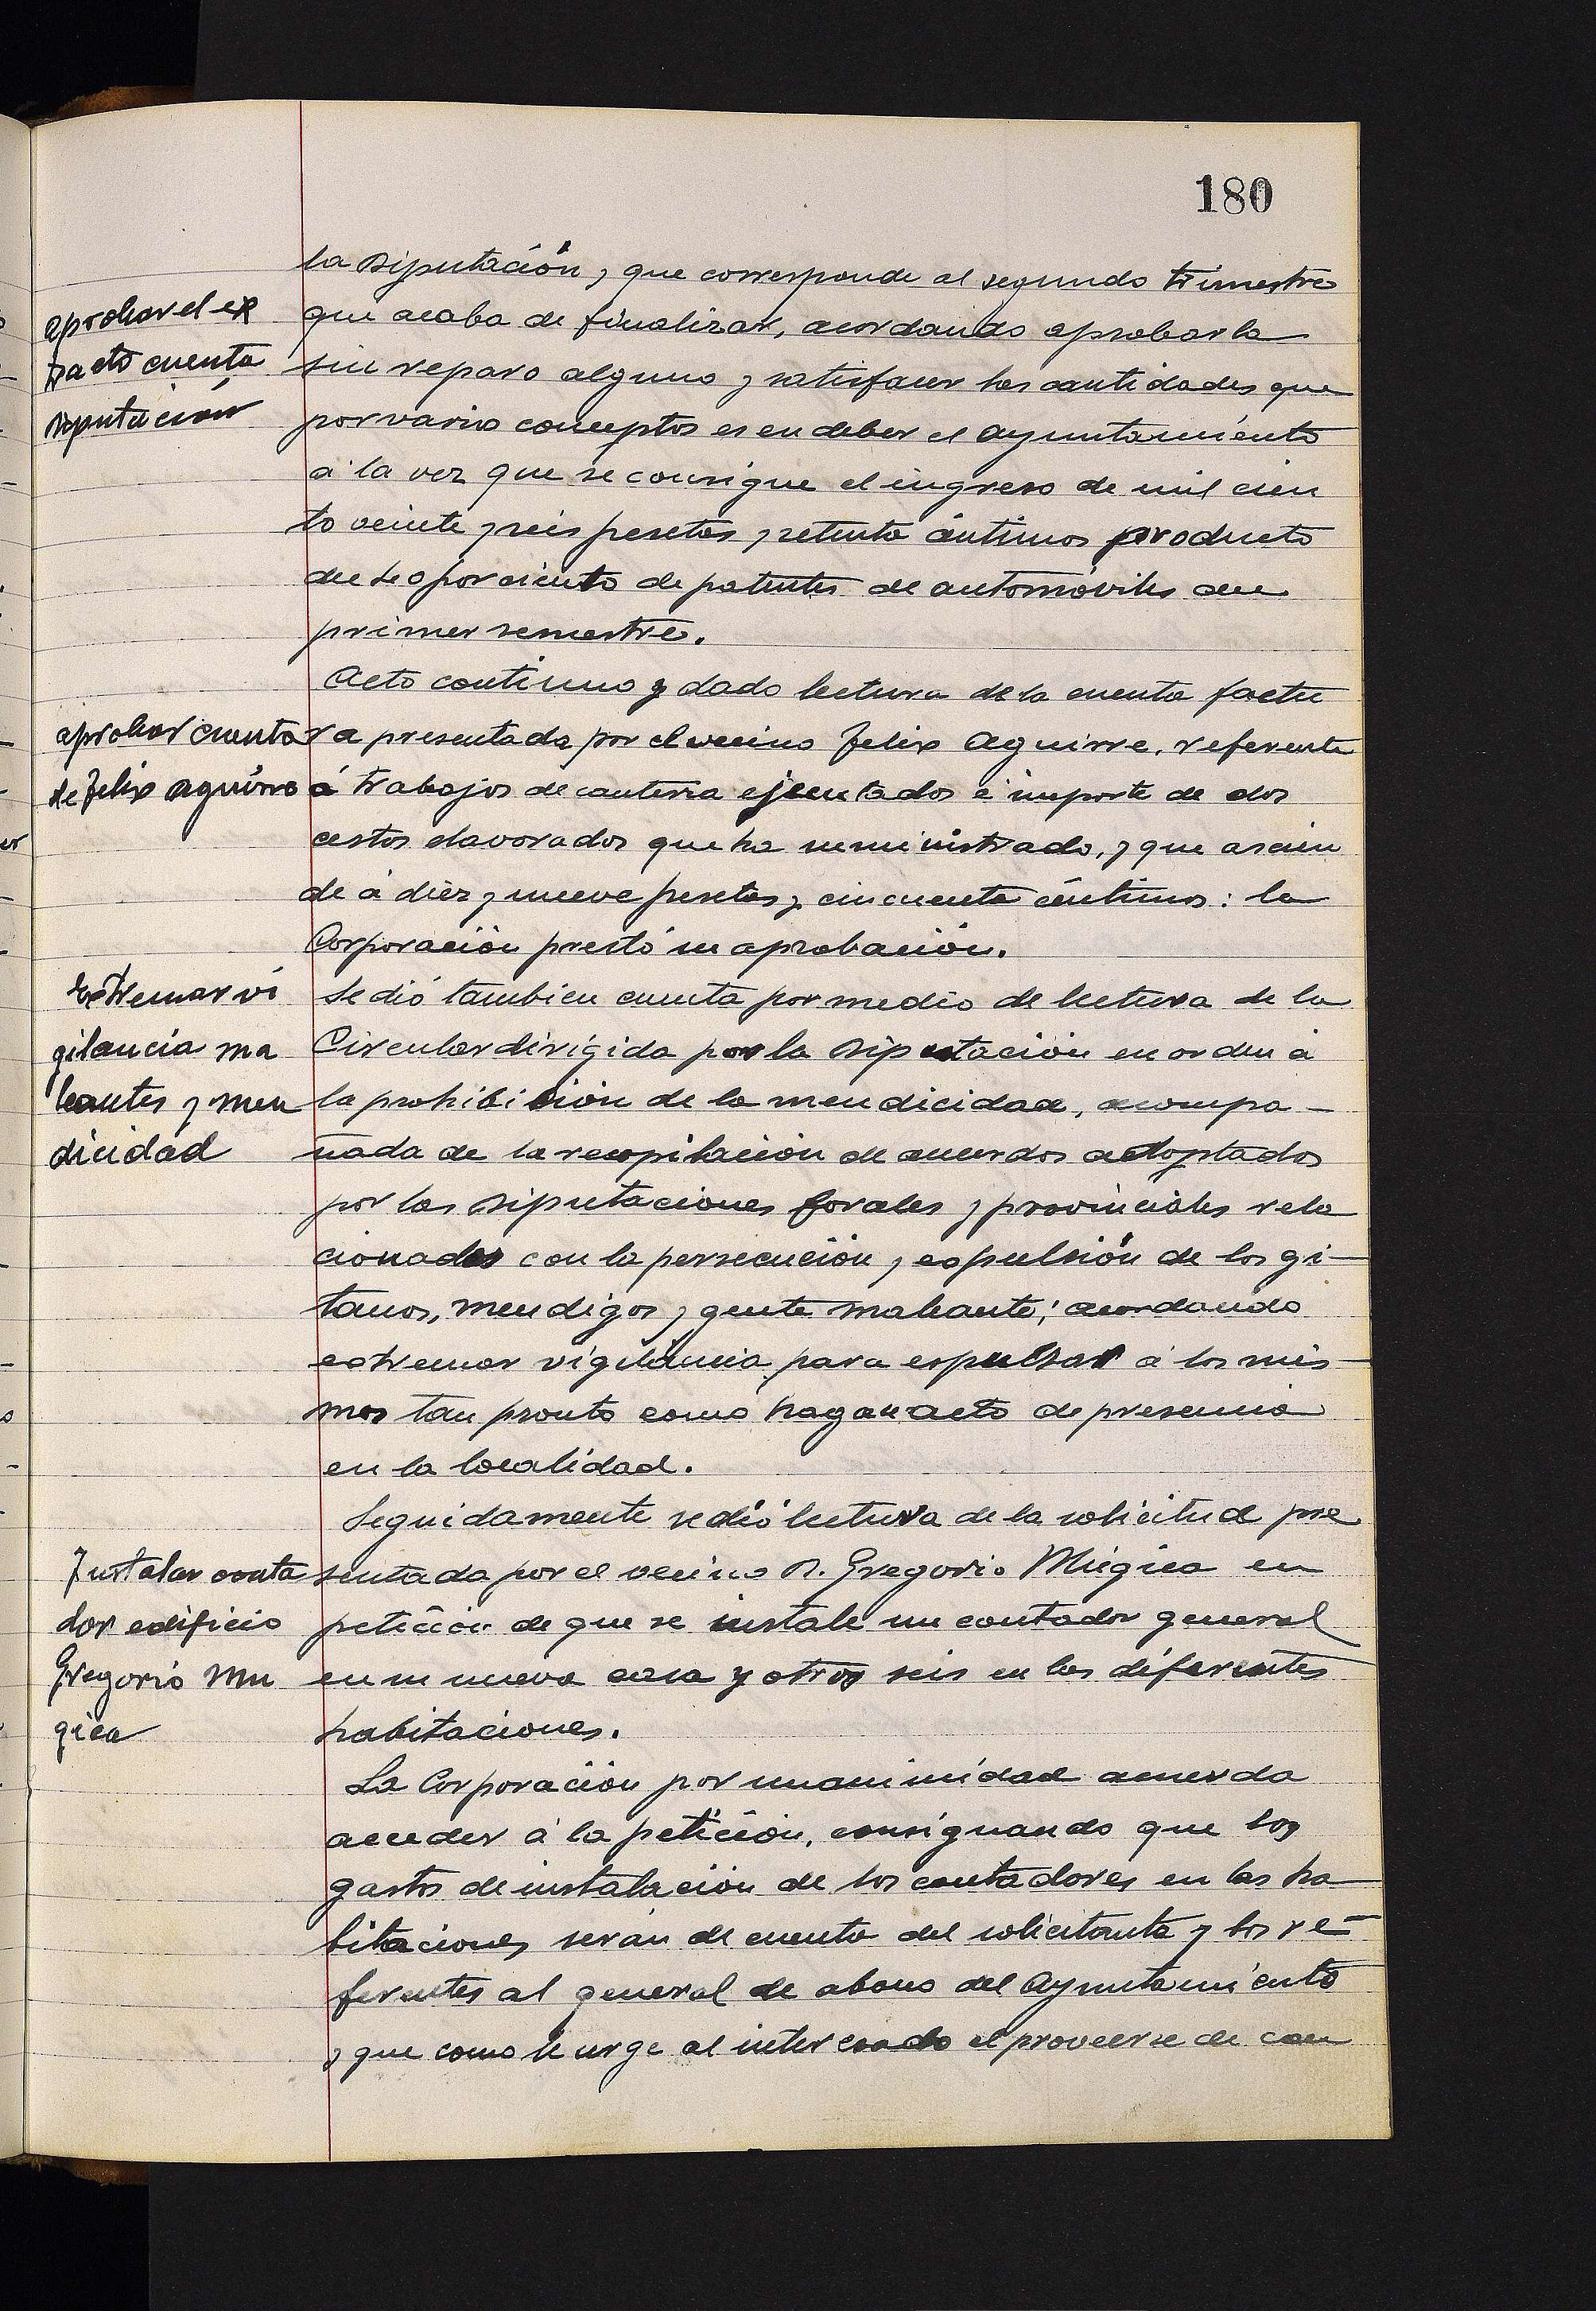 180
la Diputación, y que corresponde al segundo trimestre
aprobar el ex
que acaba de finalizar, acordando aprobarla
tracto cuenta
sin reparo alguno y satisfacer las cantidades que
Diputación
por varios conceptos es en deber el Ayuntamiento
á la vez que se consigne el ingreso de mil cien
to veinte y seis pesetas y setenta céntimos producto
del por ciento de patentes de automóviles del
primer semestre.
Acto continuo y dado lectura de la cuenta factu
aprobar cuenta
ra presentada por el vecino Felix Aguirre, referente
de Felix Aguirre
á trabajos de cantería ejecutados é importe de dos
cestos elavorados que ha suministrado, y que ascien
de á diez y nueve pesetas y cincuenta céntimos: la
Corporación prestó su aprobación.
Extremar vi
Se dió tambien cuenta por medio de lectura de la
gilancia ma
Circular dirigida por la Diputación en orden á
leantes y men
la prohibición de la mendicidad, acompa-
dicidad
ñada de la recopilación de acuerdos adoptados
por las Diputaciones forales y provinciales rela
cionados con la persecución y espulsión de los gi-
tanos, mendigos y gente maleante; acordando
estremar vigilancia para espulsar á los mis-
mos tan pronto como hagan acto de presencia
en la localidad.
Seguidamente se dió lectura de la solicitud pre
Instalar conta
sentada por el vecino D. Gregorio Múgica en
dor edificio
petición de que se instale un contador general
Gregorio Mu
en su nueva casa y otros seis en las diferentes
gica
habitaciones.
La Corporación por unanimidad acuerda
acceder á la petición, consignando que los
gastos de instalación de los contadores en las ha
bitaciones serán de cuenta del solicitante y los re-
ferentes al general de abono del Ayuntamiento
y que como le urge al interesado el proveerse de con